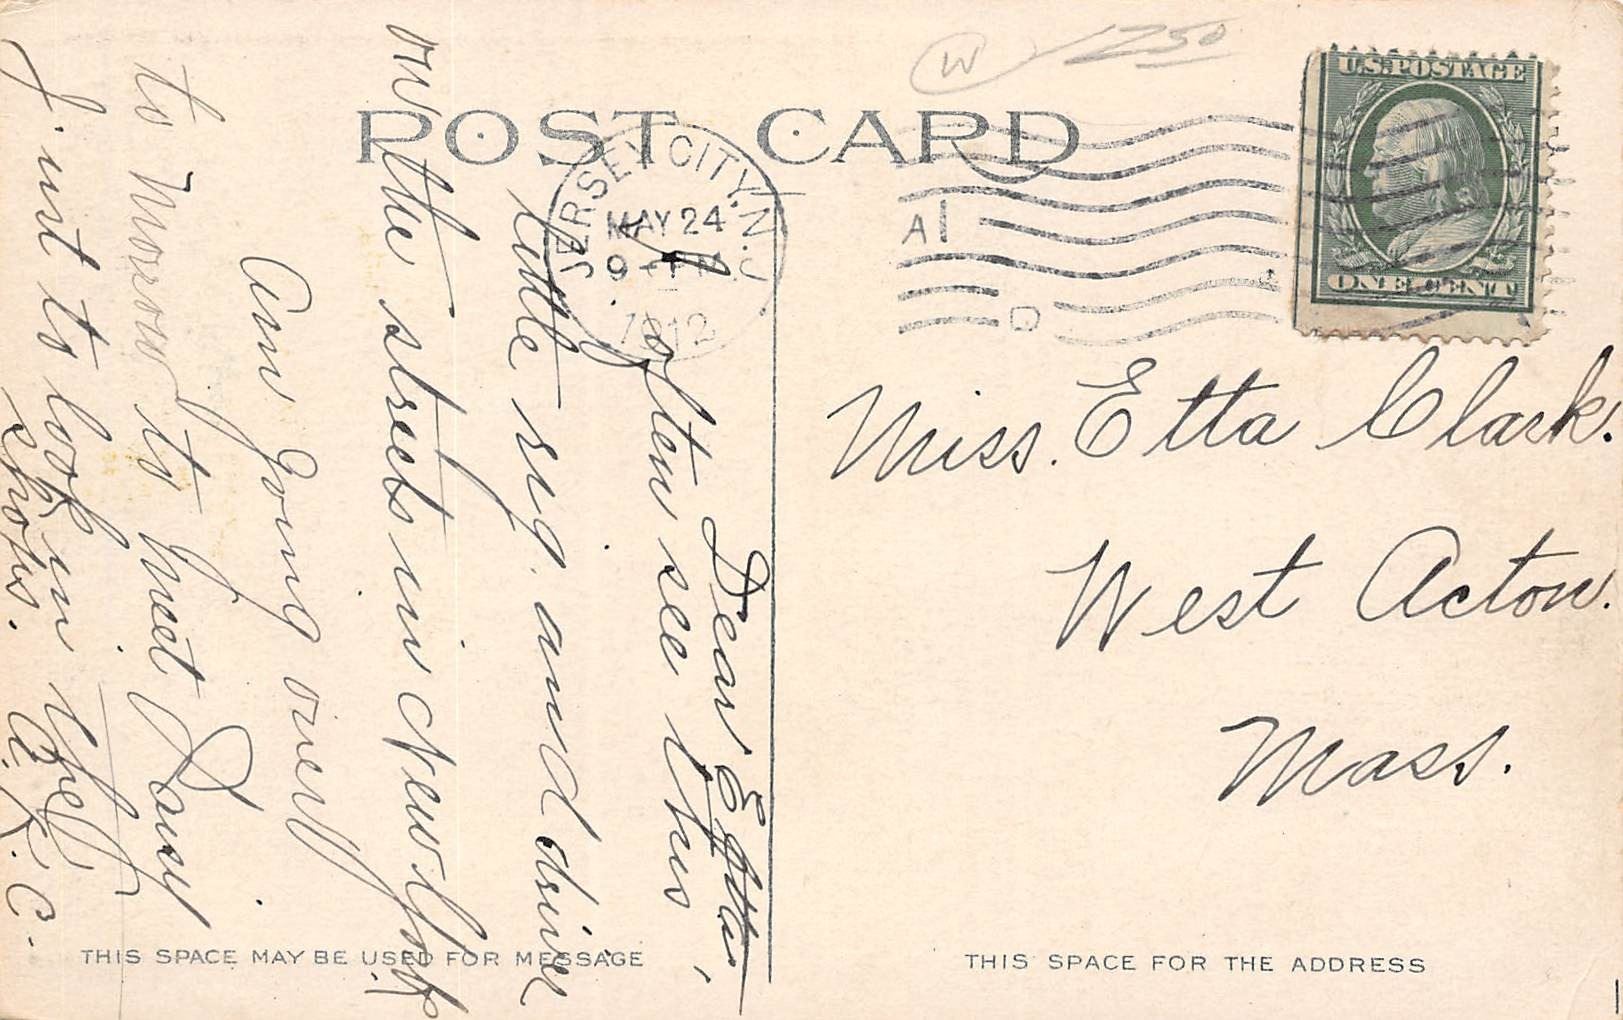 W 1250
POST CARD
JERSEY CITY, N.J.
MAY 24
9
1912
A 1
D
U.S. POSTAGE
ONE CENT
Dear Etta,
I often see this
little rig. and driver
on the streets in New York
Am going over
to morrow to meet Daisy
J. unt to look in the
shops. A. K. C.
Miss. Etta Clark.
West Acton.
Mass.
THIS SPACE MAY BE USED FOR MESSAGE
THIS SPACE FOR THE ADDRESS